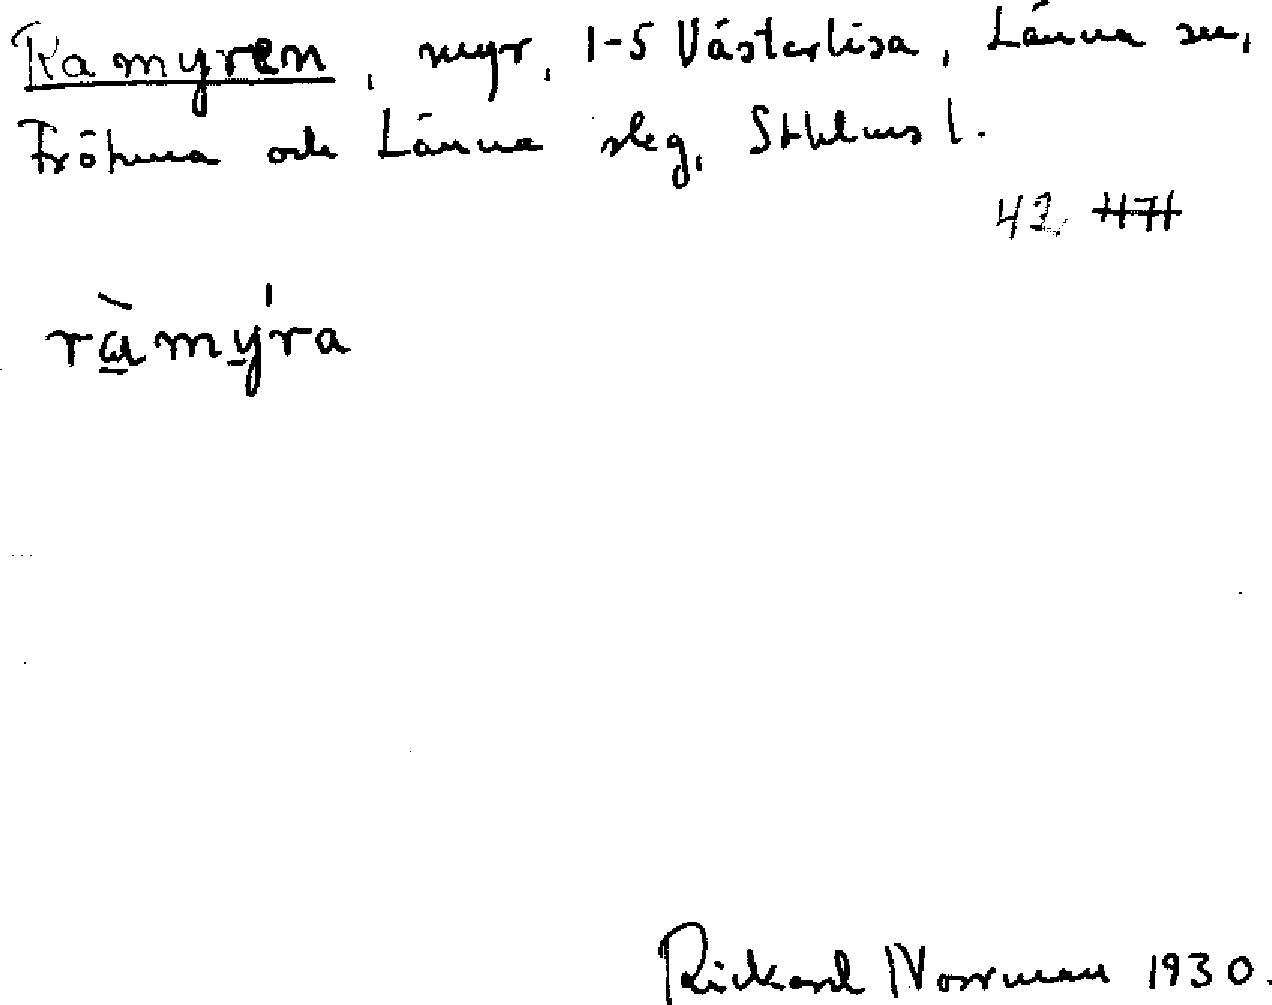 Ramyren, myr, 1-5 Västerlisa, Länna sn,
Frötuna och Länna slg, Sthlms l.
42 1171
ràmý̱ra
Rickard Norrman 1930.